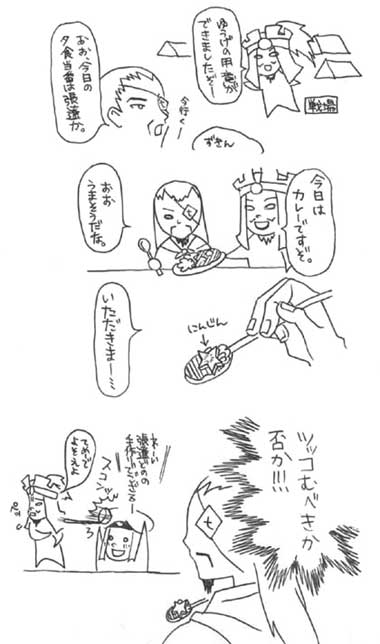 ゆうげの用意が
できましたぞー
戦場
おお、今日の
夕食当番は張遼か。
今行くー
ずきん
今日は
カレーですぞ。
おお
うまそうだな。
にんじん
いただきまー…
ツッコむべきか
否か!!!
わーい
張遼どの
手作りでござるー
スコンッ
てめーで
よそえよ